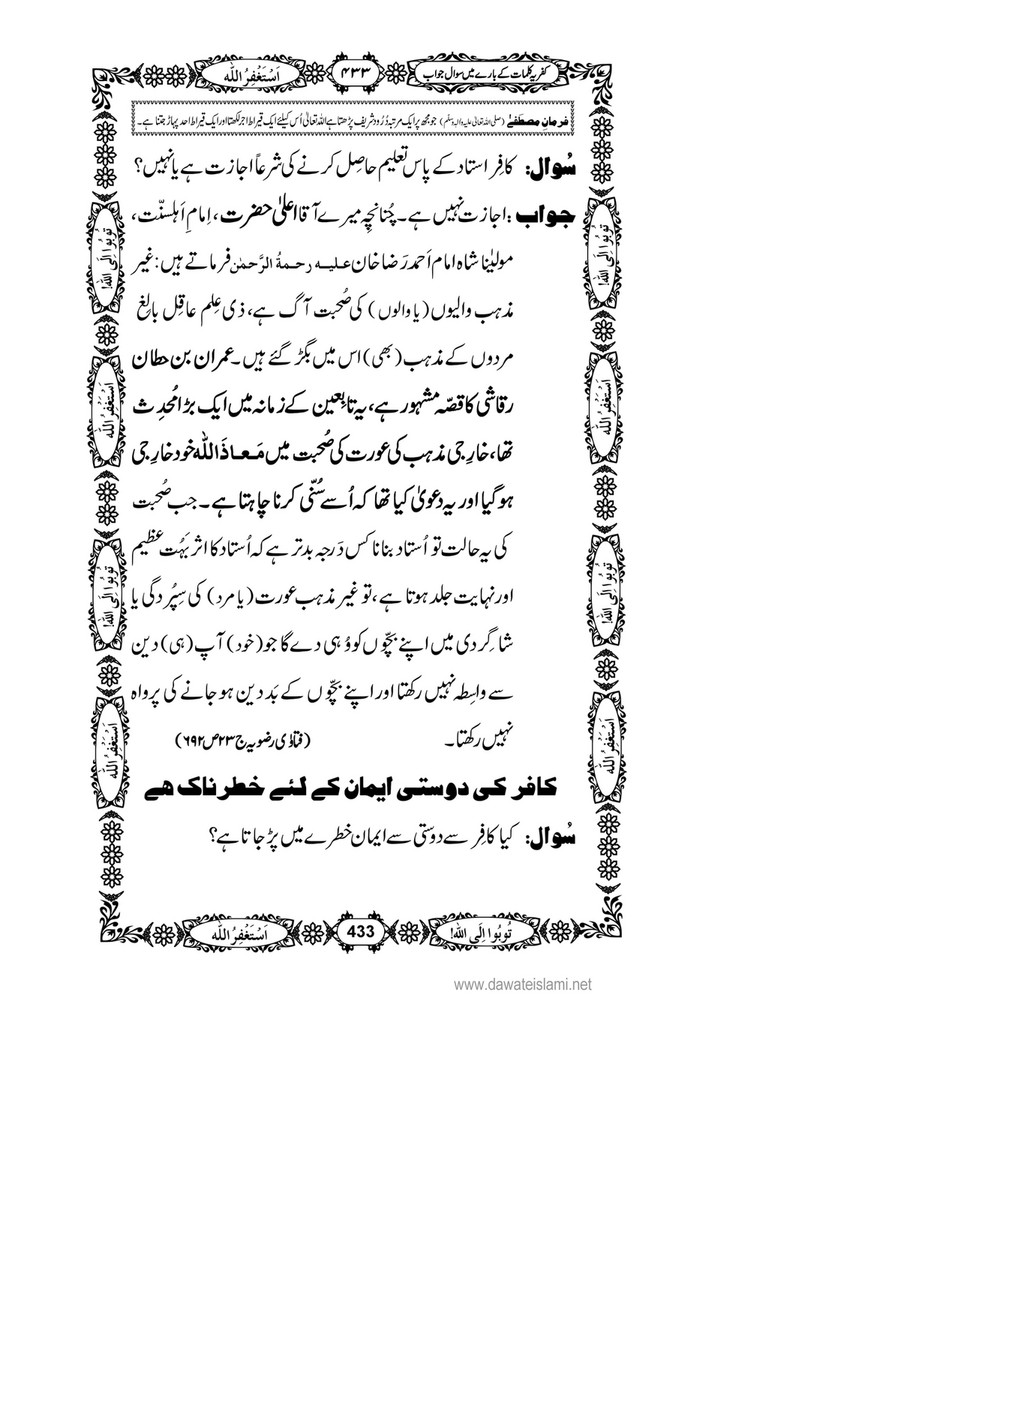 کفریہ کلمات کے بارے میں سوال جواب ۴۳۳ اَسْتَغْفِرُ اللہ
فرمانِ مصطفٰے (صلی اللہ تعالیٰ علیہ والہ وسلم) جو مجھ پر ایک مرتبہ دُرُود شریف پڑھتا ہے اللہ تعالیٰ اُس کیلئے ایک قیراط اجر لکھتا اور ایک قیراط احد پہاڑ جتنا ہے۔
سُوال: کافِر استاد کے پاس تعلیم حاصِل کرنے کی شرعاً اجازت ہے یا نہیں؟
جواب: اجازت نہیں ہے۔ چُنانچِہ میرے آقا اعلیٰ حضرت، اِمامِ اَہلسنّت،
مولیٰنا شاہ امام اَحمد رَضا خان علیہ رحمۃُ الرَّحمٰن فرماتے ہیں: غیر
مذہب والیوں (یا والوں) کی صُحبت آگ ہے، ذی عِلم عاقِل بالِغ
مردوں کے مذہب (بھی) اس میں بگڑ گئے ہیں۔ عمران بن حطان
رقاشی کا قصّہ مشہور ہے، یہ تابِعین کے زمانہ میں ایک بڑا مُحدِث
تھا، خارِجی مذہب کی عورت کی صُحبت میں مَعاذَ اللہ خود خارِجی
ہو گیا اور یہ دعویٰ کیا تھا کہ اُسے سُنّی کرنا چاہتا ہے۔ جب صُحبت
کی یہ حالت تو اُستاد بنانا کس دَرجہ بدتر ہے کہ اُستاد کا اثر بَہُت عظیم
اور نہایت جلد ہوتا ہے، تو غیر مذہب عورت (یا مرد) کی سِپُردگی یا
شاگِردی میں اپنے بچّوں کو وُہی دے گا جو (خود) آپ (ہی) دین
سے واسِطہ نہیں رکھتا اور اپنے بچّوں کے بَد دین ہو جانے کی پرواہ
نہیں رکھتا۔ (فتاوٰی رضویہ ج۲۳ص۶۹۲)
کافر کی دوستی ایمان کے لئے خطرناک ھے
سُوال: کیا کافِر سے دوستی سے ایمان خطرے میں پڑ جاتا ہے؟
تُوبُوا اِلَی اللہ!
اَسْتَغْفِرُ اللہ
تُوبُوا اِلَی اللہ!
اَسْتَغْفِرُ اللہ
تُوبُوا اِلَی اللہ!
اَسْتَغْفِرُ اللہ
تُوبُوا اِلَی اللہ!
اَسْتَغْفِرُ اللہ
تُوبُوا اِلَی اللہ! 433 اَسْتَغْفِرُ اللہ
www.dawateislami.net